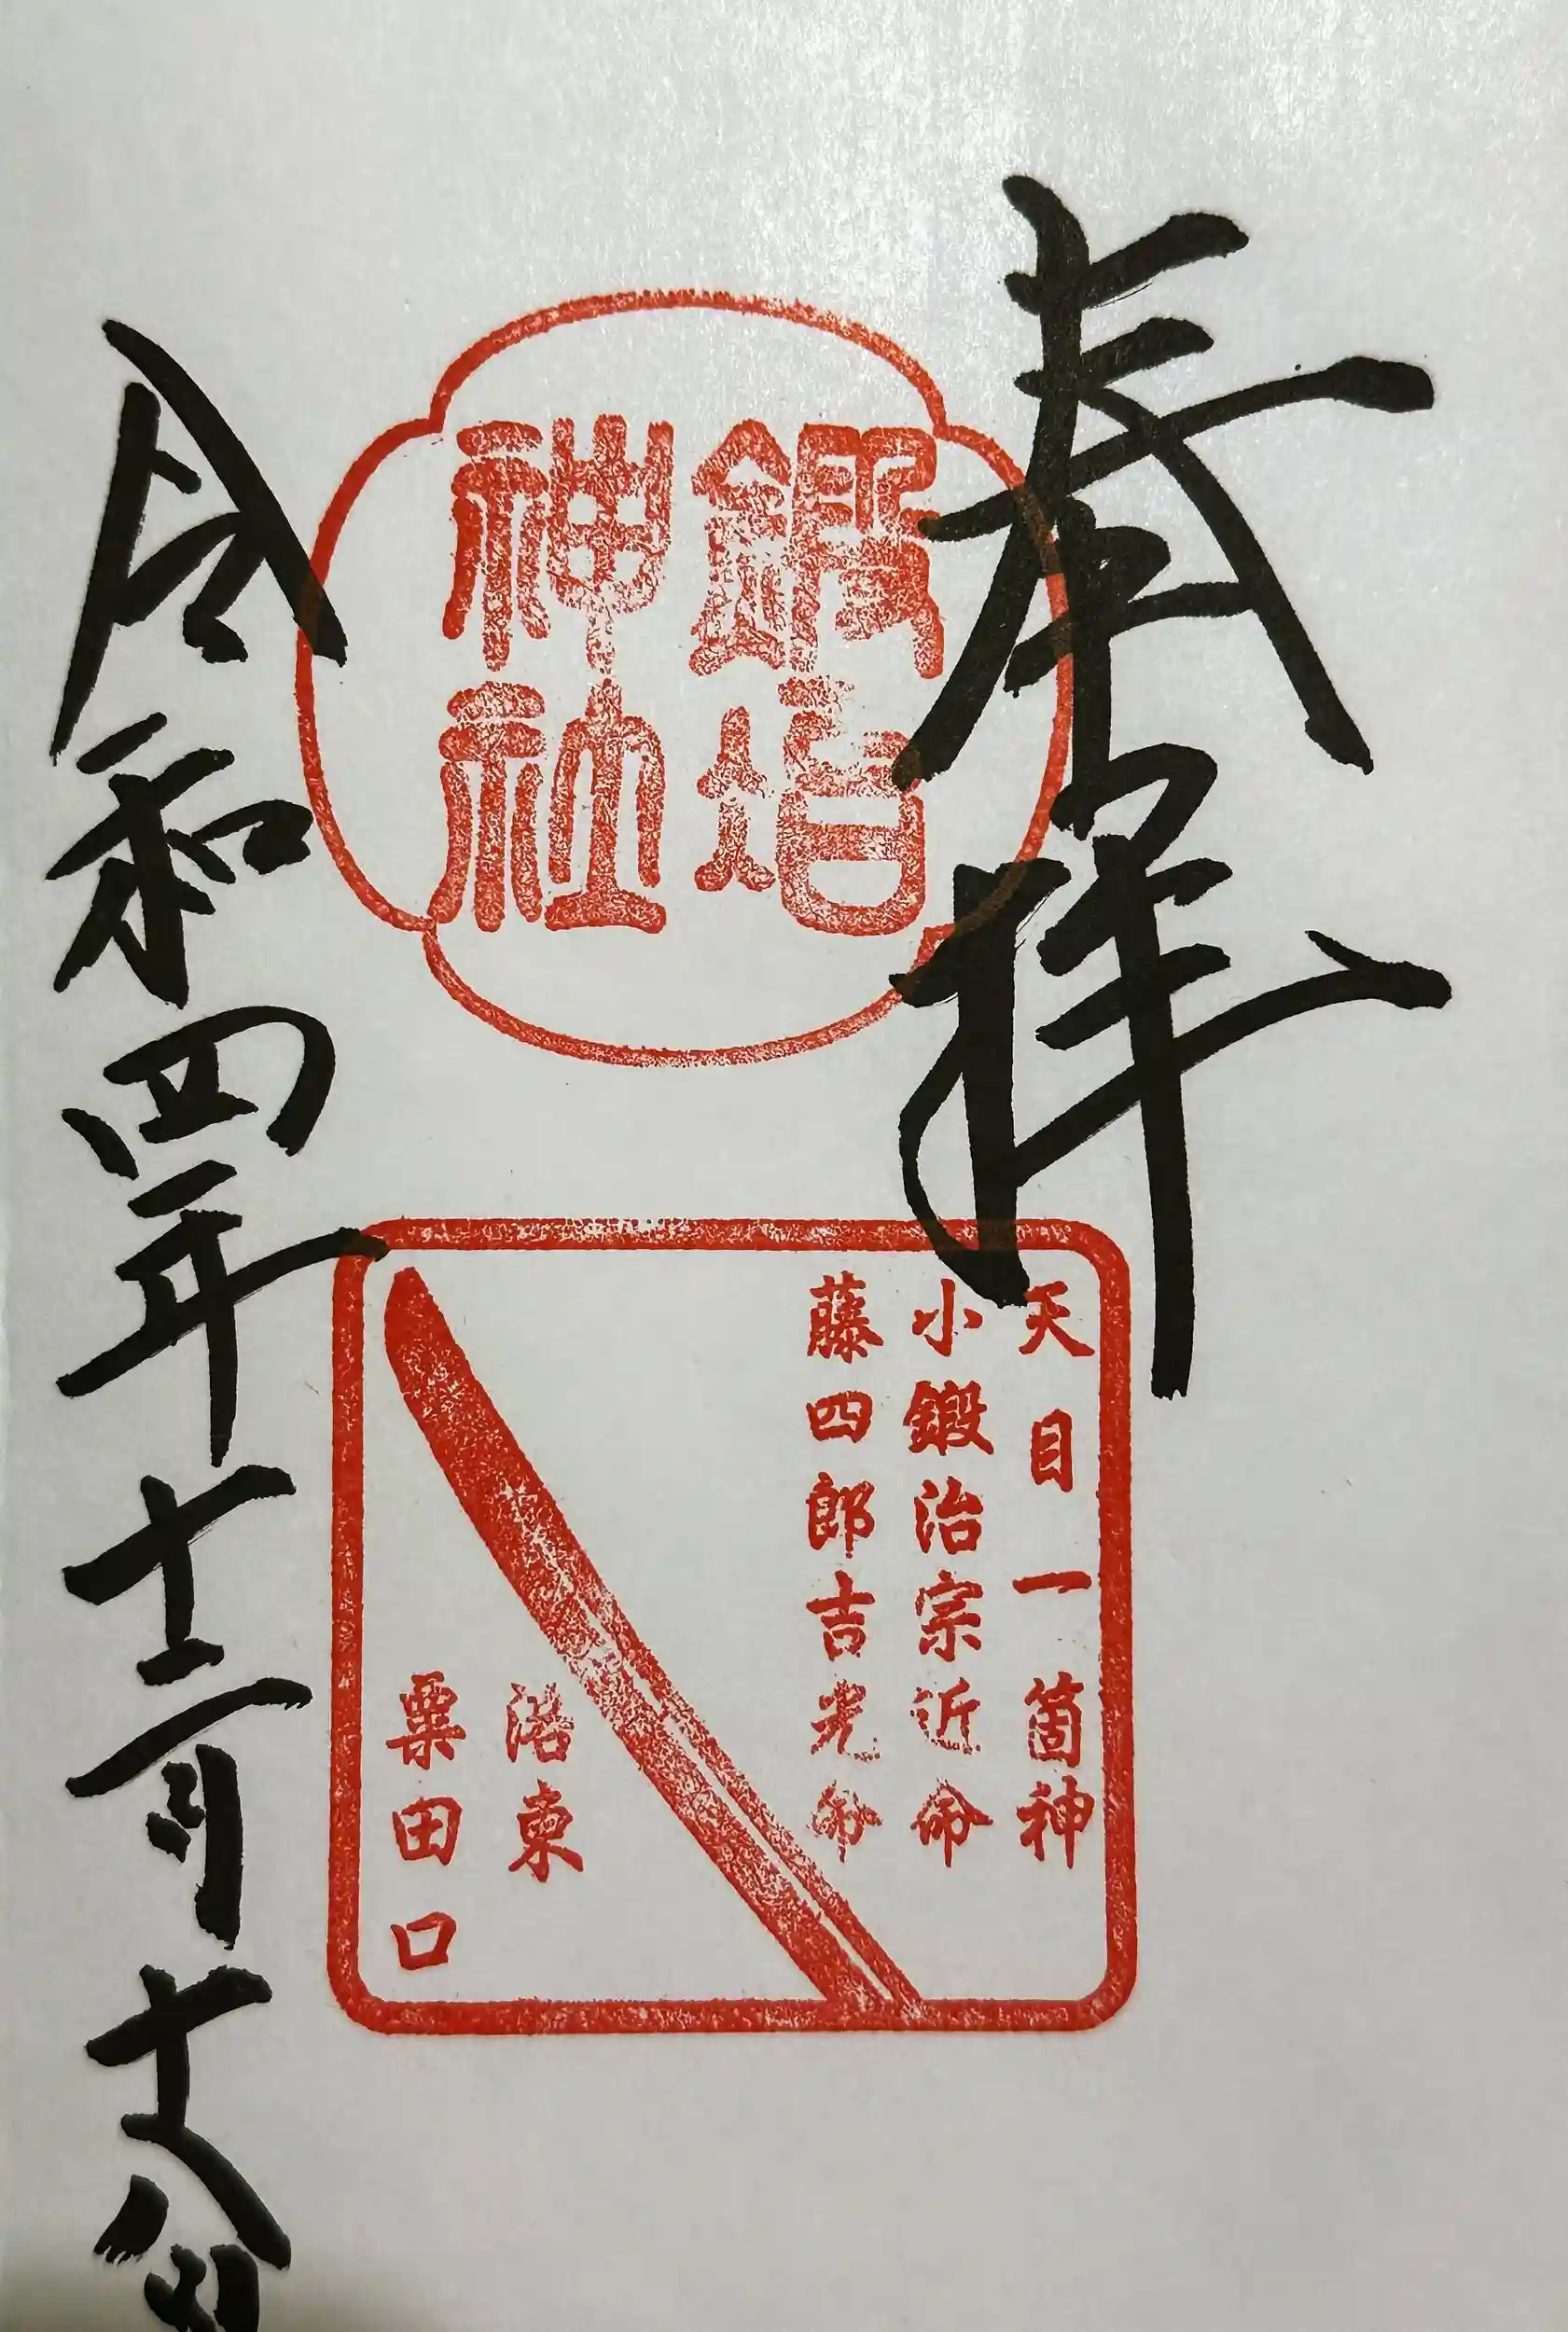 奉拝
鍛冶
神社
天目一箇神
小鍛治宗近命
藤四郎吉光命
洛東
粟田口
令和四年十二月十八日